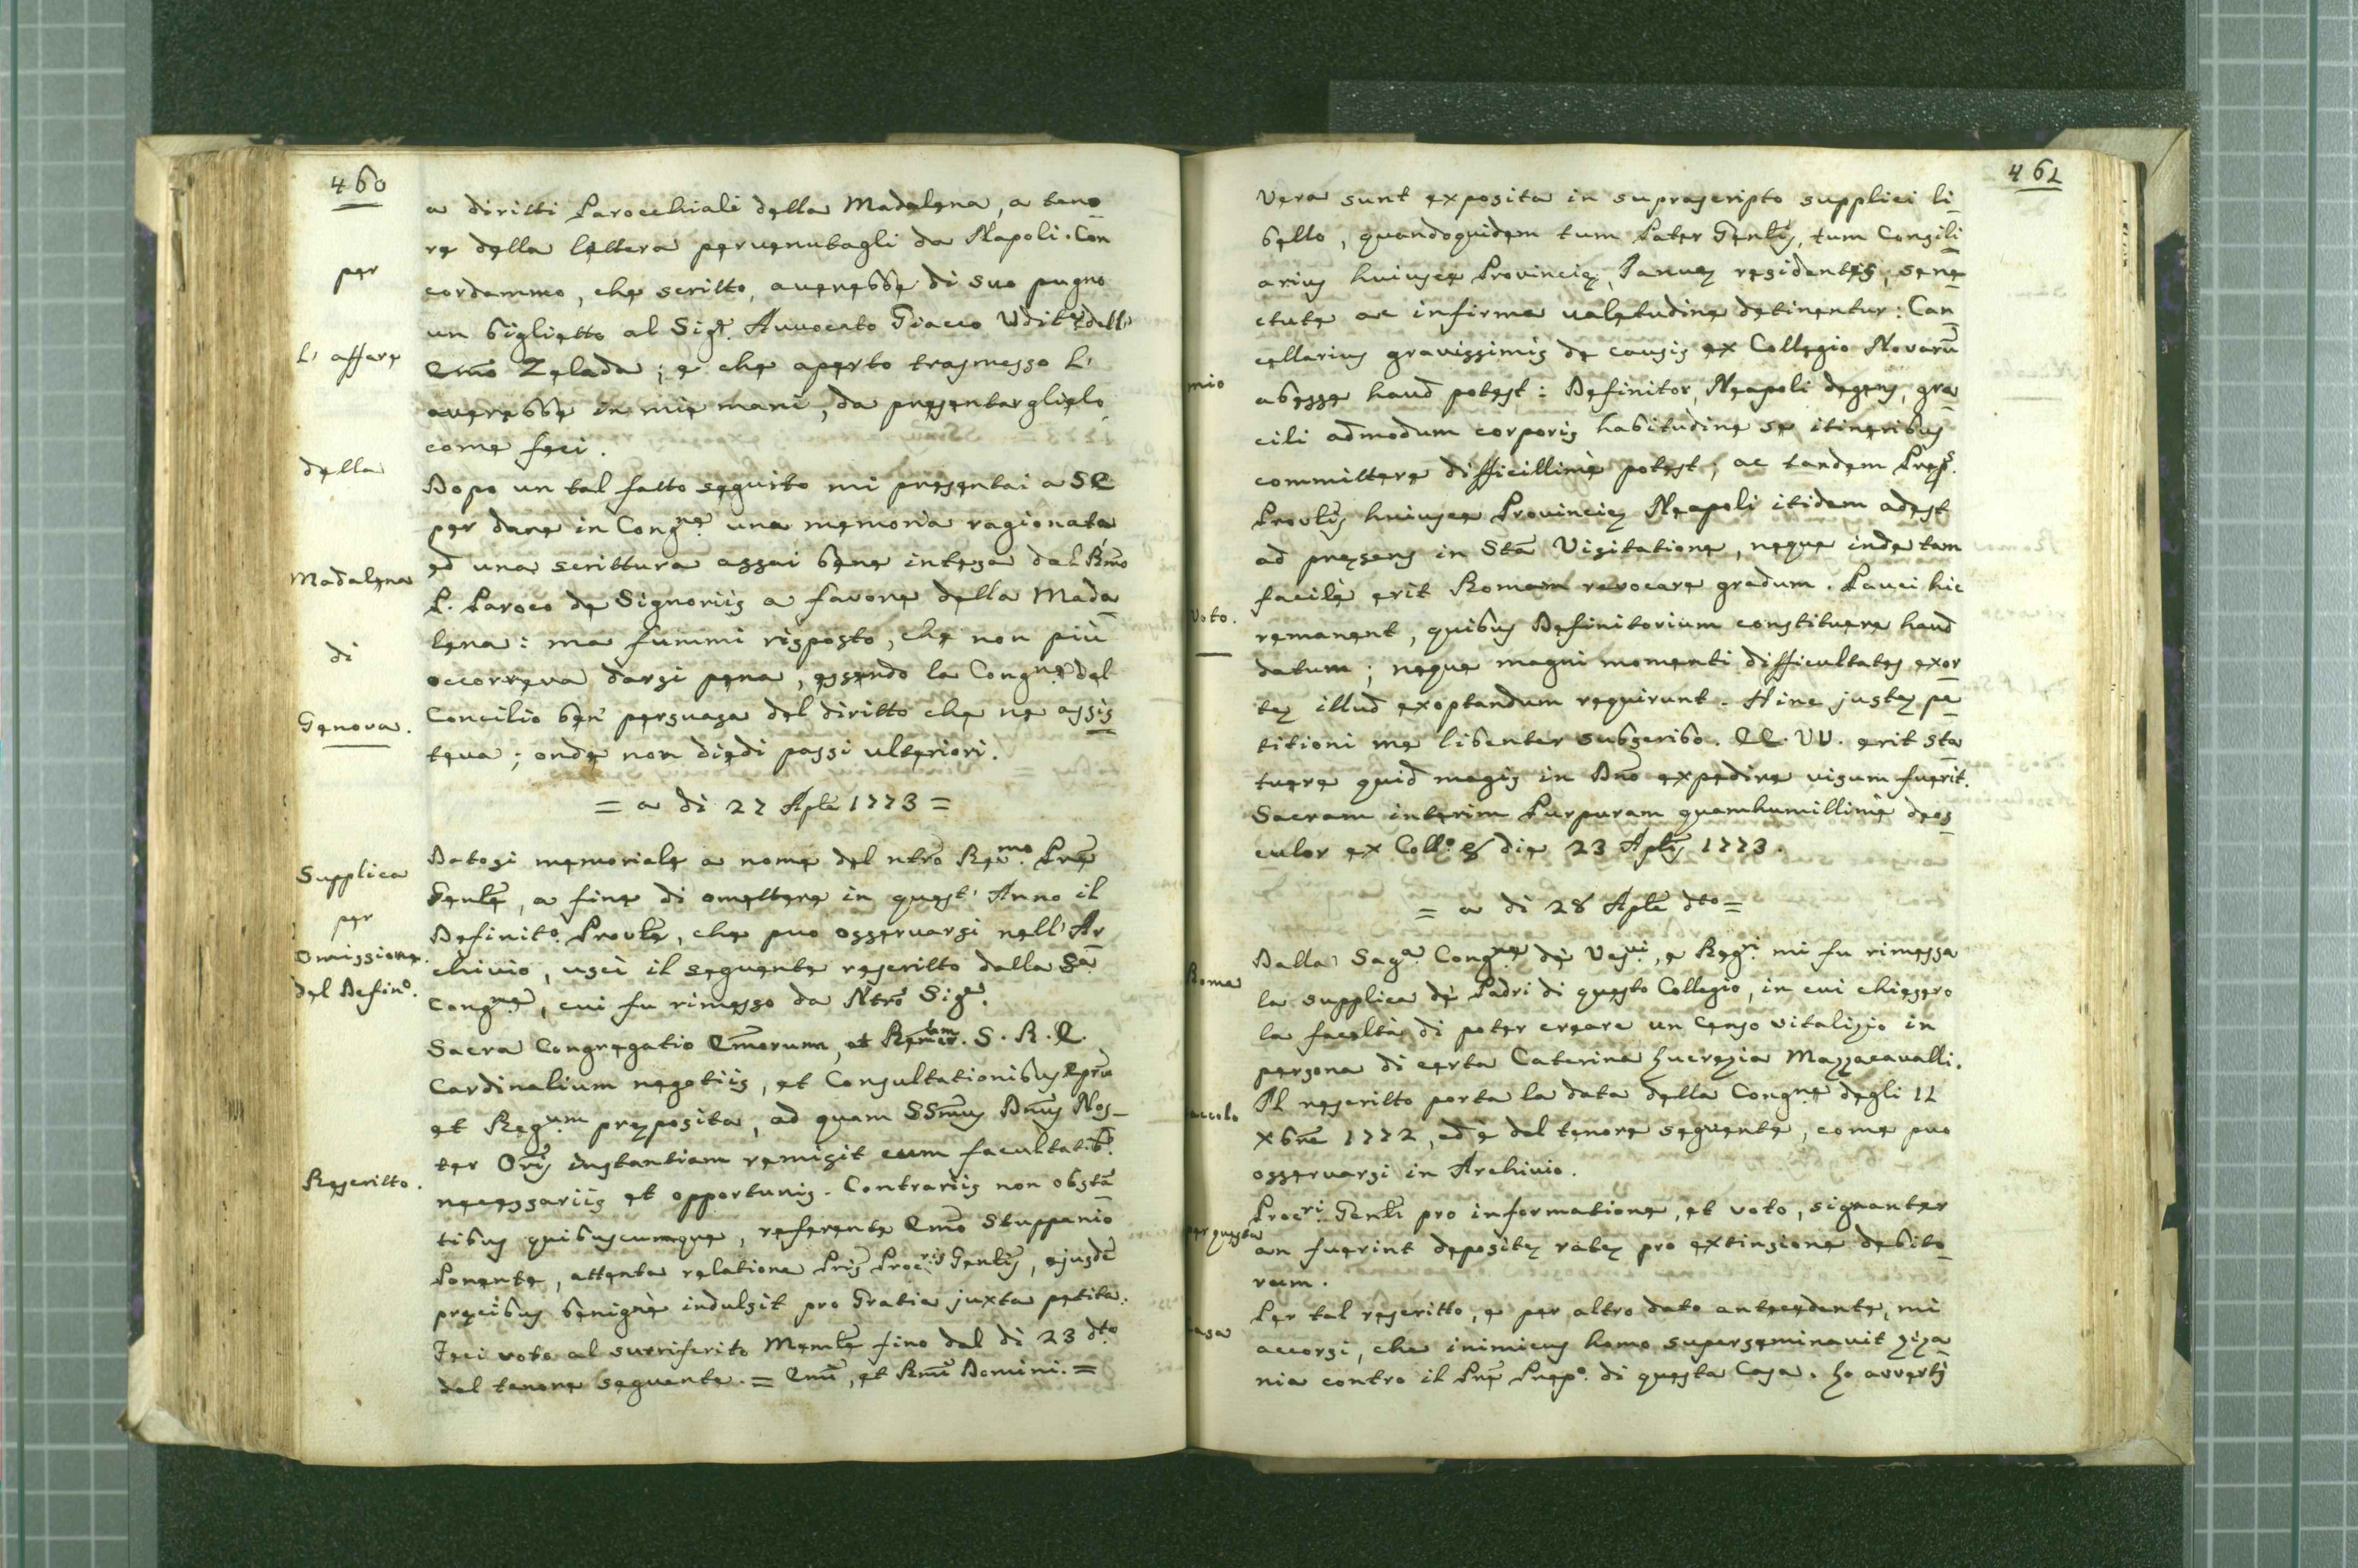 460
a diritti Parocchiali della Madalena, a teno
re della lettera pervenutagli da Napoli. Con
per
cordammo, che scritto, averebbe di suo pugno
un biglietto al Sigr. Avvocato Giacco Udite dell'
L' affare
Emo Zelada; e che aperto trasmesso l'
averebbe in mie mani, da presentarglielo
come feci.
della
Dopo un tal fatto seguito mi presentai a SE
per dare in Congne una memoria ragionata
ed una scrittura assai bene intesa dal Rmo
Madalena
P. Paroco de Signoriis a favore della Mada
lena: ma fummi risposto, che non più
di
occorreva darsi pena, essendo la Congne del
Genova.
Concilio ben persuasa del diritto che ne assis
teva; onde non diedi passi ulteriori.
= a di 27 Aple 1773 =
Supplica
Datosi memoriale a nome del ntro Revmo. Pre
Genle, a fine di omettere in quest' Anno il
per
Definito. Provle, che puo osservarsi nell' Ar
Omissione
chivio, uscì il seguente rescritto dalla Sa
del Defino.
Congne, cui fu rimesso da Ntro Sige.
Sacra Congregatio Emorum, et S. R. E.
Cardinalium negotiis, et Consultationibus Eprum
et Regum preposita, ad quam SSmus Dnus Nos-
ter Oris instantiam remisit cum facultatib.
Rescritto.
necessariis et opportunis. Contrariis non obstã
tibus quibuscumque, referente Emo Stuppanio
Ponente, attenta relatione Pris Procris Genlis, ejusdẽ
precibus benignè indulsit pro Gratia juxta petita.
Feci voto al surriferito Memle fino dal di 23 dto
del tenore seguente. = Emi, et Rmi Domini. =
461
Vera sunt exposita in suprascripto supplici li
bello, quandoquidem tum Pater Genlis, tum Consili
arius hujusce Provincię, Januę residentes, sene
ctute ac infirma valetudine detinentur: Can
cellarius gravissimis de causis ex Collegio Novarũ
mio
abesse haud potest: Definitor, Neapoli degens, gra
cili admodum corporis habitudine se itineribus
committere difficillimè potest; ac tandem Preps.
Provlis hujusce Provincię Neapoli itidem adest
ad presens in Sta Visitatione, neque inde tam
facilè erit Romam revocare gradum. Pauci hic
Voto.
remanent, quibus Definitorium constituere haud
datum; neque magni momenti difficultates exor
tę illud exoptandum requirunt. Hinc justę pe
titioni me libenter subscribo. EE. VV. erit sta
tuere quid magis in Dno expedire visum fuerit.
Sacram interim Purpuram quamhumillimè deos
culor ex Collo. & die 23 Aplis 1773.
= a di 28 Aple dto =
Dalla Saga. Congne de Vesvi, e Regri mi fu rimessa
Roma
la supplica de Padri di questo Collegio, in cui chiesero
la facoltà di poter creare un Censo vitalizio in
persona di certa Caterina Lucrezia Mazzacavalli.
Il rescritto porta la data della Congne degli 11
Xbre 1772, ed è del tenore seguente, come puo
osservarsi in Archivio.
Procri. Genli pro informatione, et voto, signanter
per questa
an fuerint depositę ratę pro extinsione debito
rum.
Per tal rescritto, e per altro dato antecedente, mi
accorsi, che inimicus homo superseminavit ziza
nia contro il Pre Prepo. di questa Casa. Lo avvertj